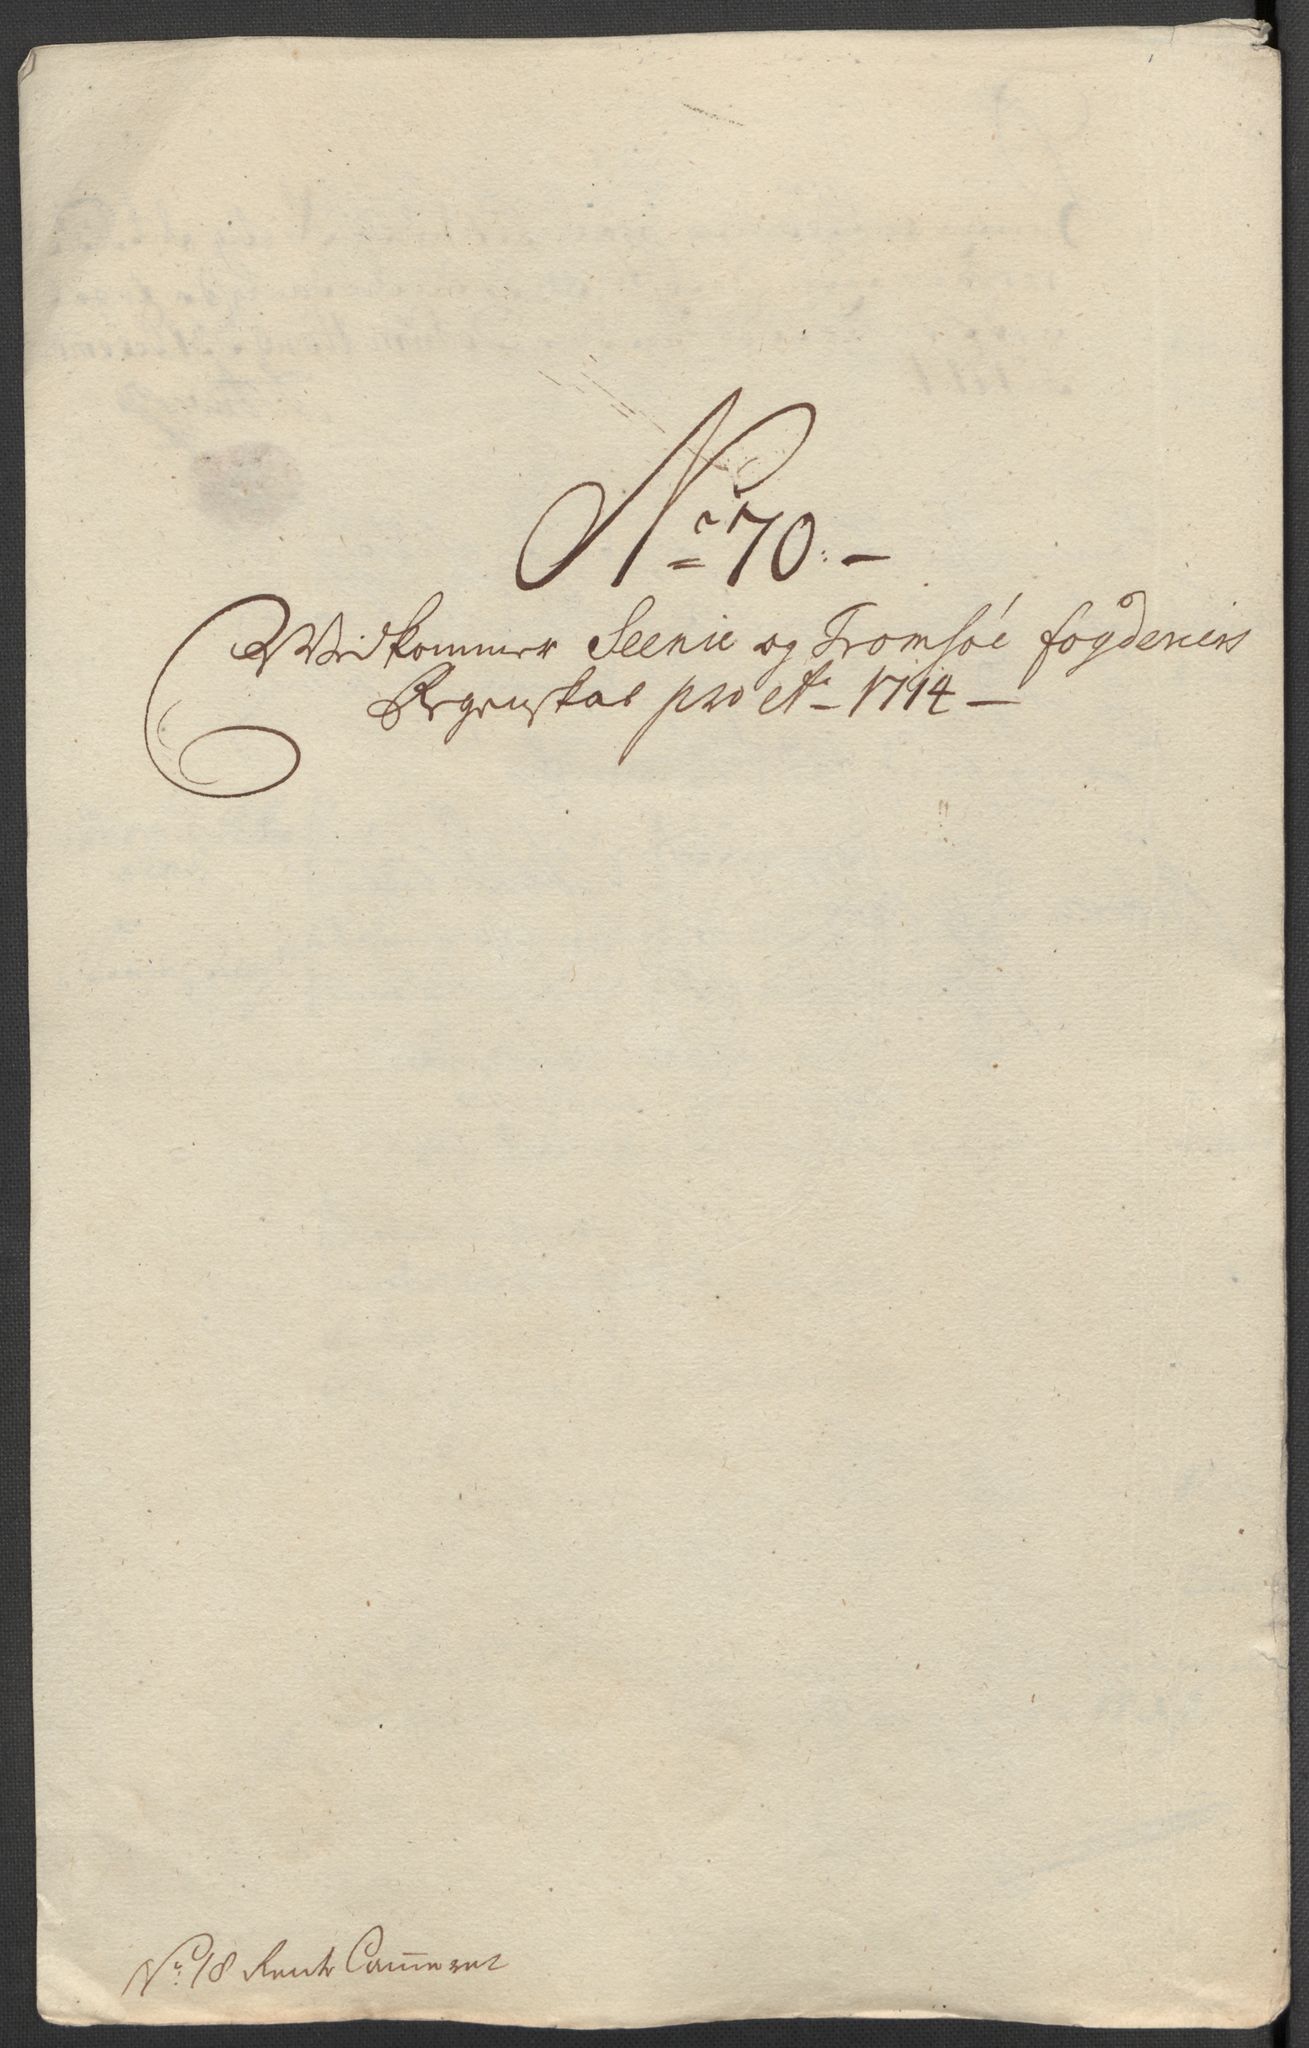 No 70. –
Vedkommer Seenie og Tromsøe fogderiers
Regenskab pro Ao – 1714 –
No 18 Rente Cam̄eret